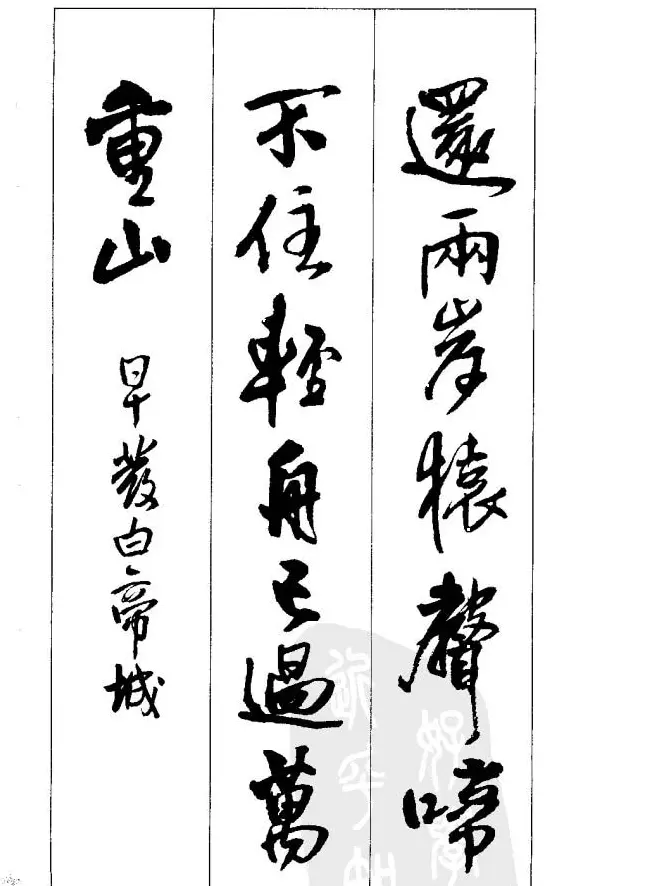 還兩岸猿聲啼
不住輕舟已過萬
重山
早發白帝城